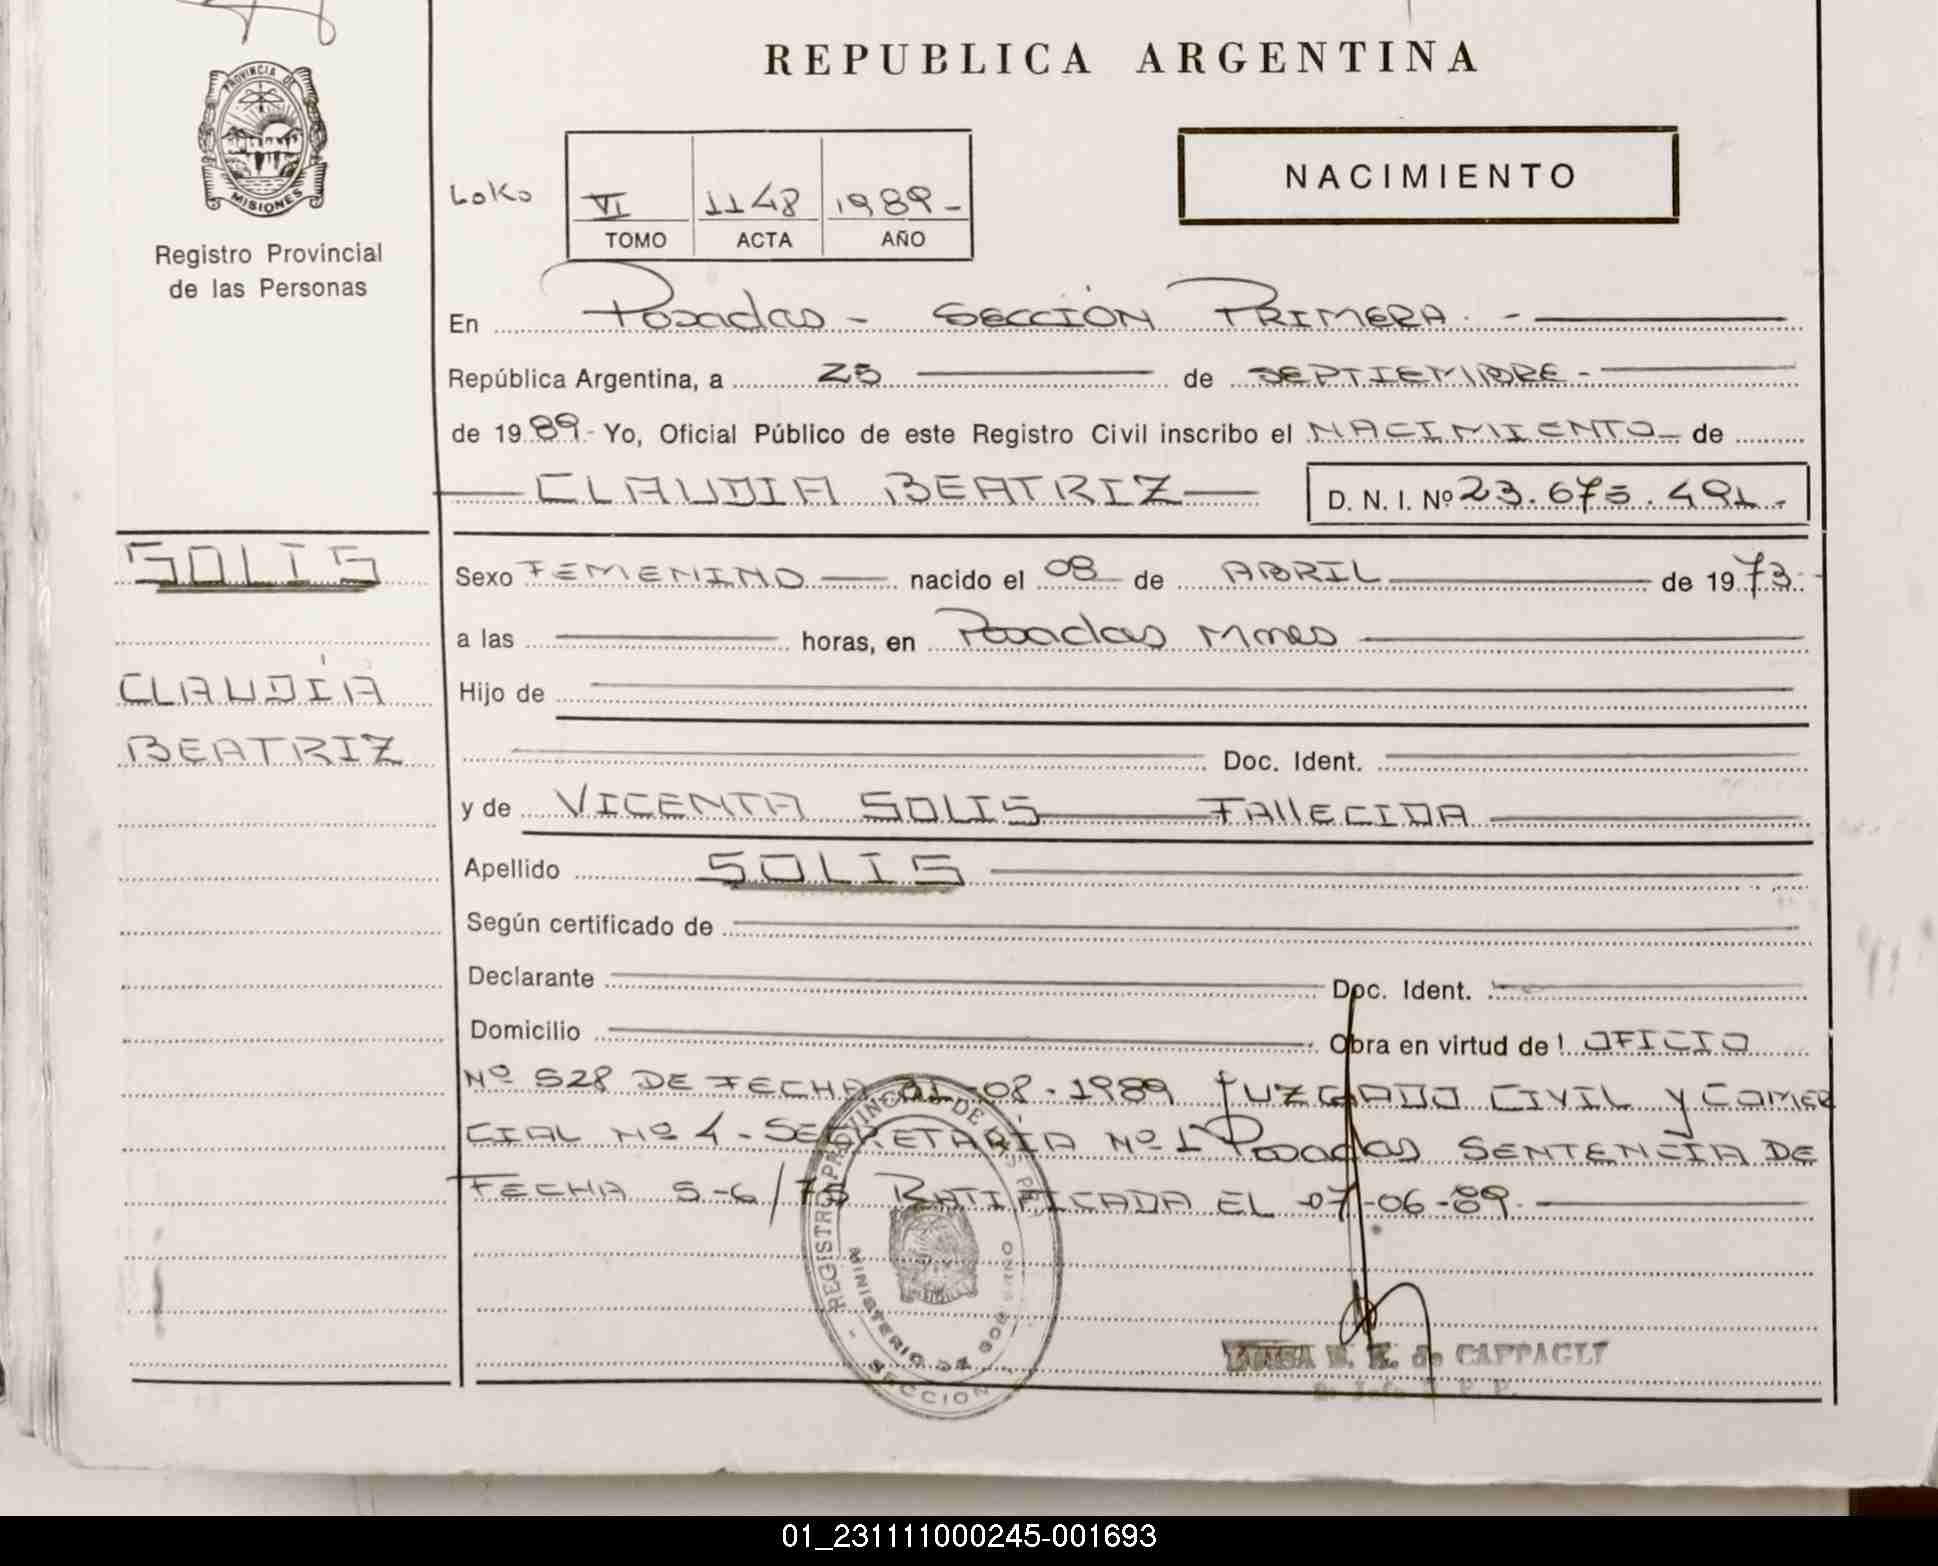 REPUBLICA ARGENTINA
PROVINCIA DE
MISIONES
Registro Provincial
de las Personas
NACIMIENTO
VI 1148 1989-
TOMO ACTA AÑO
En Posadas - SECCIÓN PRIMERA. -
República Argentina, a 25 de SEPTIEMBRE-
de 1989- Yo, Oficial Público de este Registro Civil inscribo el NACIMIENTO de
CLAUDIA BEATRIZ
D. N. I. Nº 23.675.491.-
SOLIS
CLAUDÍA
BEATRIZ
Sexo FEMENINO nacido el 08 de ABRIL de 1973.-
a las horas, en Posadas Mnes
Hijo de
Doc. Ident.
y de VICENTA SOLIS FAllECIDA
Apellido SOLIS
Según certificado de
Declarante Doc. Ident.
Domicilio Obra en virtud de OFICIO
Nº 528 DE FECHA 01-08-1989 JUZGADO CIVIL y COMER
CIAL Nº 4-SECRETARÍA Nº 1 Posadas SENTENCIA DE
FECHA 5-6/ RATIFICADA EL 07-06-89.
REGISTRO PROVINCIAL DE LAS PER
MINISTERIO DE GOBIERNO
SECCION
de CAPPAGLI
01_231111000245-001693